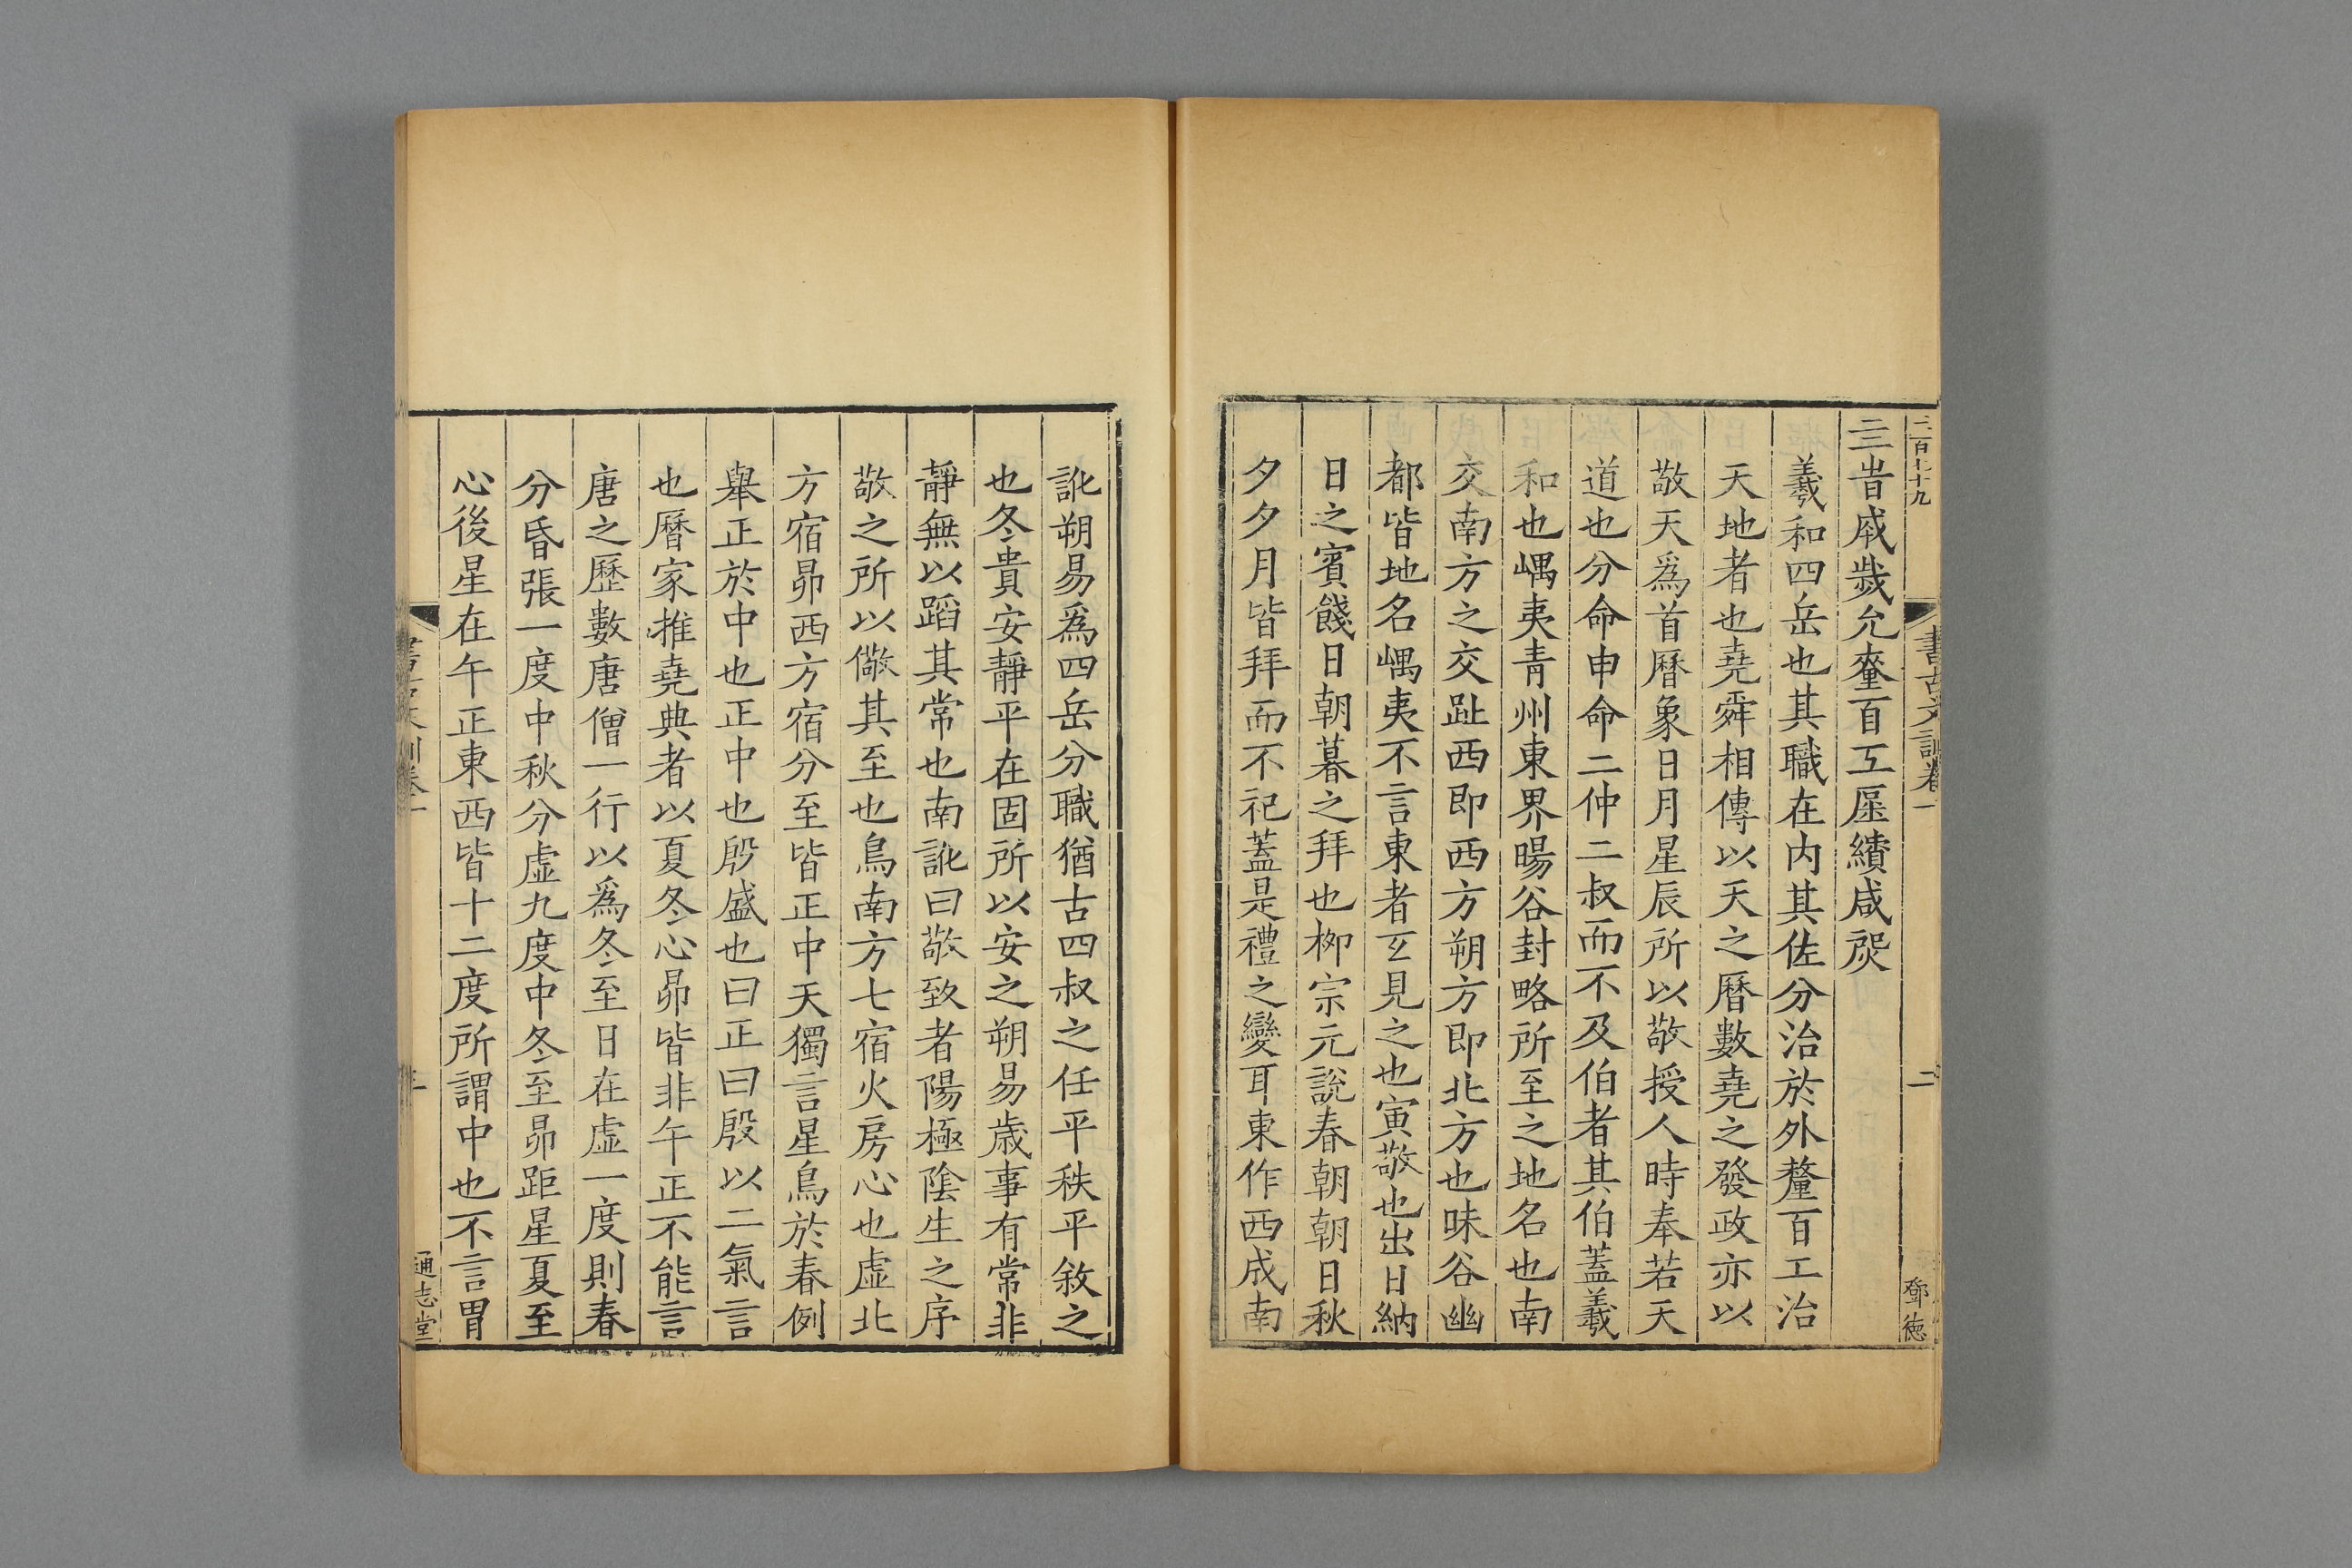 三百七十九
書古文訓卷一
二
鄧德
亖旹成歲允釐百工庶績咸熙
羲和四岳也其職在内其佐分治於外釐百工治
天地者也堯舜相傳以天之曆數堯之發政亦以
敬天爲首曆象日月星辰所以敬授人時奉若天
道也分命申命二仲二叔而不及伯者其伯蓋羲
和也嵎夷青州東界暘谷封略所至之地名也南
交南方之交趾西即西方朔方即北方也昧谷幽
都皆地名嵎夷不言東者互見之也寅敬也出日納
日之賓餞日朝暮之拜也栁宗元說春朝朝日秋
夕夕月皆拜而不祀蓋是禮之變耳東作西成南
訛朔易爲四岳分職猶古四叔之任平秩平敘之
也冬貴安靜平在固所以安之朔易歲事有常非
靜無以蹈其常也南訛曰敬致者陽極陰生之序
敬之所以儆其至也鳥南方七宿火房心也虛北
方宿昴西方宿分至皆正中天獨言星鳥於春例
舉正於中也正中也殷盛也曰正曰殷以二氣言
也曆家推堯典者以夏冬心昴皆非午正不能言
唐之歷數唐僧一行以爲冬至日在虛一度則春
分昏張一度中秋分虛九度中冬至昴距星夏至
心後星在午正東西皆十二度所謂中也不言胃
通志堂